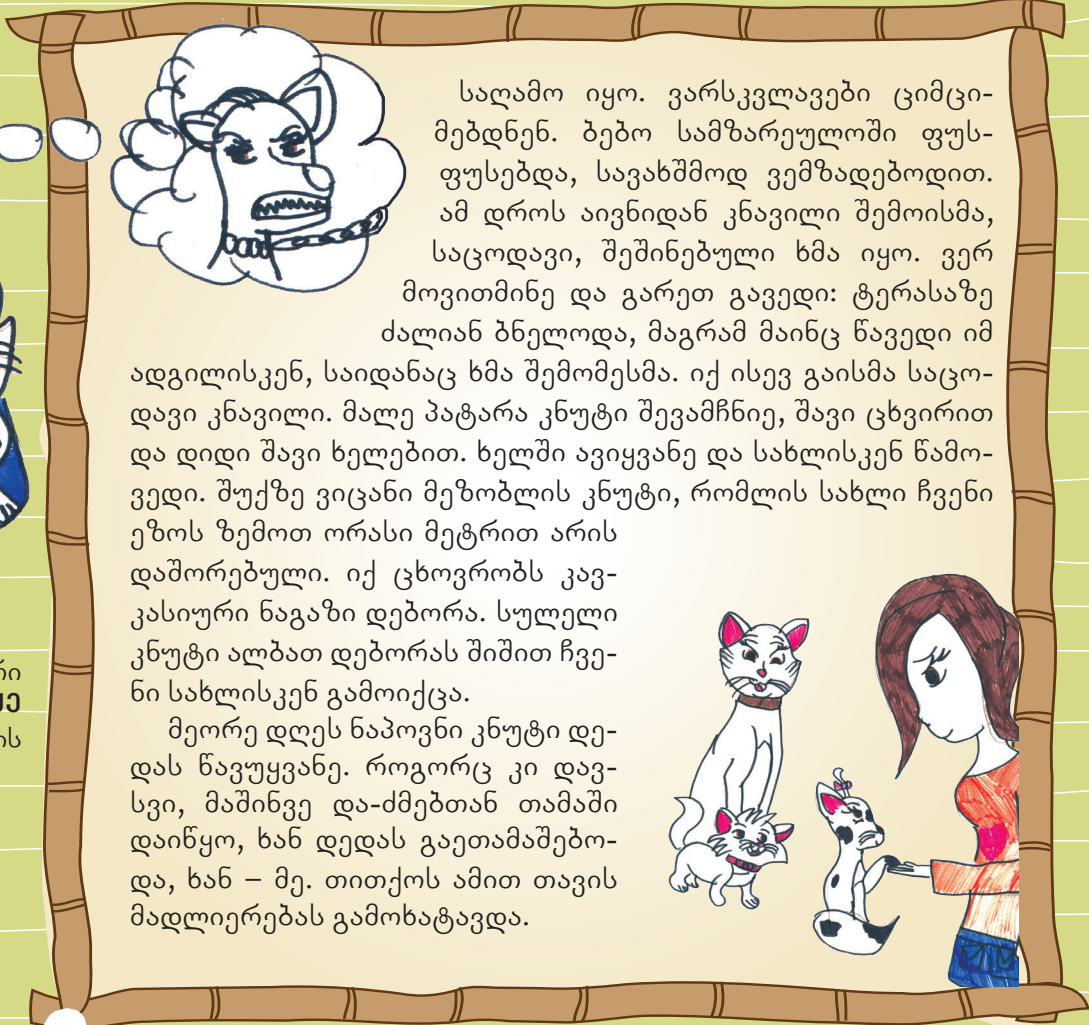 საღამო იყო. ვარსკვლავები ციმცი-
მებდნენ. ბებო სამზარეულოში ფუს-
ფუსებდა, სავახშმოდ ვემზადებოდით.
ამ დროს აივნიდან კნავილი შემოისმა,
საცოდავი, შეშინებული ხმა იყო. ვერ
მოვითმინე და გარეთ გავედი: ტერასაზე
ძალიან ბნელოდა, მაგრამ მაინც წავედი იმ
ადგილისკენ, საიდანაც ხმა შემომესმა. იქ ისევ გაისმა საცო-
დავი კნავილი. მალე პატარა კნუტი შევამჩნიე, შავი ცხვირით
და დიდი შავი ხელებით. ხელში ავიყვანე და სახლისკენ წამო-
ვედი. შუქზე ვიცანი მეზობლის კნუტი, რომლის სახლი ჩვენი
ეზოს ზემოთ ორასი მეტრით არის
დაშორებული. იქ ცხოვრობს კავ-
კასიური ნაგაზი დებორა. სულელი
კნუტი ალბათ დებორას შიშით ჩვე-
ნი სახლისკენ გამოიქცა.
მეორე დღეს ნაპოვნი კნუტი დე-
დას წავუყვანე. როგორც კი დავ-
სვი, მაშინვე და-ძმებთან თამაში
დაიწყო, ხან დედას გაეთამაშებო-
და, ხან – მე. თითქოს ამით თავის
მადლიერებას გამოხატავდა.